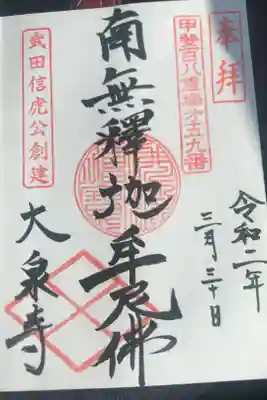 奉拝
甲斐百八霊場第五九番
令和二年
三月三十日
南無釋迦牟尼佛
武田信虎公創建
大泉寺